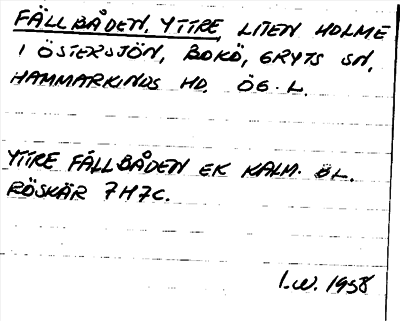 FÄLLBÅDEN, YTTRE, LITEN HOLME
I ÖSTERSJÖN, BOKÖ, GRYTS SN,
HAMMARKINDS HD. ÖG. L.
YTTRE FÄLLBÅDEN EK KALM. BL.
RÖSKÄR 7H7C.
I.W. 1958